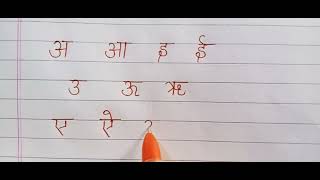 अ आ इ ई
उ ऊ ऋ
ए ऐ